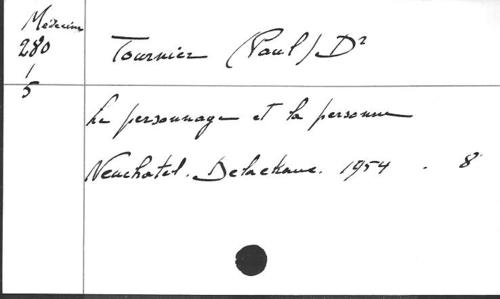 Médecine
280
1
5
Tournier (Paul) Dr
Le personnage et la personne
Neuchatel. Delachaux. 1954 . 8°